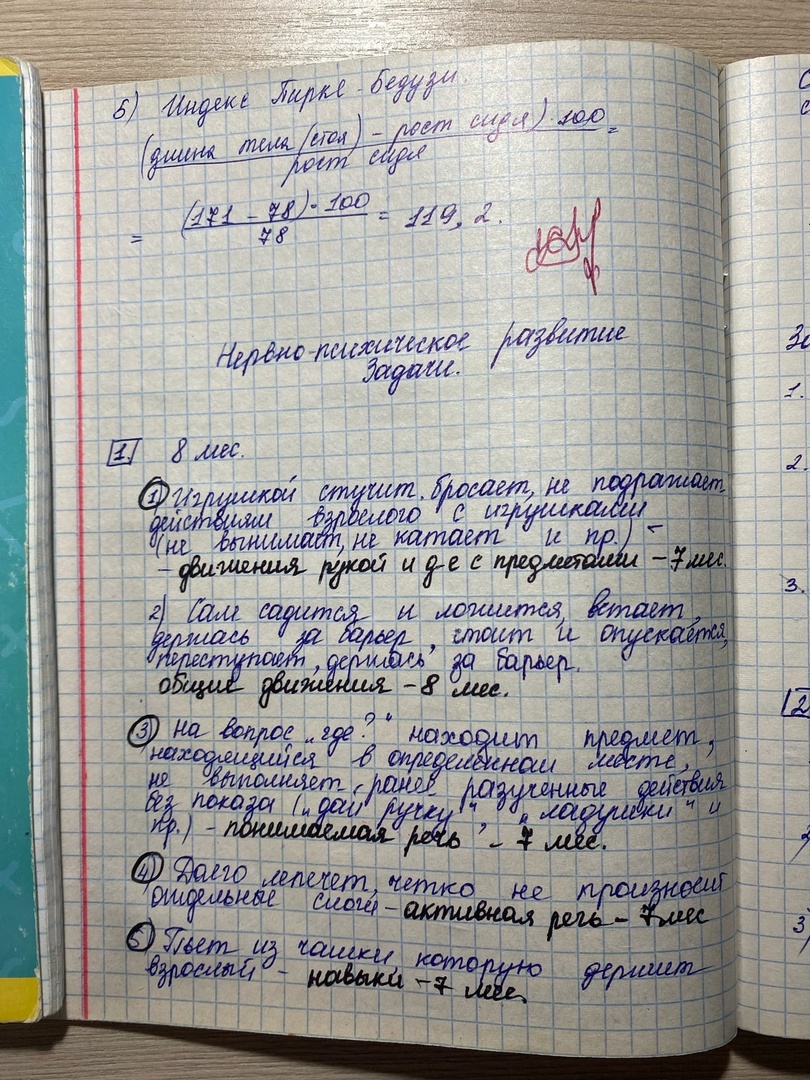 5) Индекс Пирке-Бедузи.
(длина тела (стоя) – рост сидя) · 100 =
рост сидя
= (171 – 78) · 100 = 119, 2.
78
Нервно-психическое развитие
Задачи.
1. 8 мес.
1 Игрушкой стучит, бросает, не подражает
действиям взрослого с игрушками
(не вынимает, не катает и пр.) –
– движения рукой и д-е с предметами – 7 мес.
2) Сам садится и ложится, встает,
держась за барьер, стоит и опускается,
переступает, держась за барьер.
общие движения – 8 мес.
3 На вопрос „где?“ находит предмет,
находящийся в определенном месте,
не выполняет ранее разученные действия
без показа („дай ручку“, „ладушки“ и
пр.) – понимаемая речь – 7 мес.
4 Долго лепечет, четко не произносит
отдельные слоги – активная речь – 7 мес
5 Пьет из чашки которую держит
взрослый – навыки – 7 мес.
1.
2.
3.
2
3)